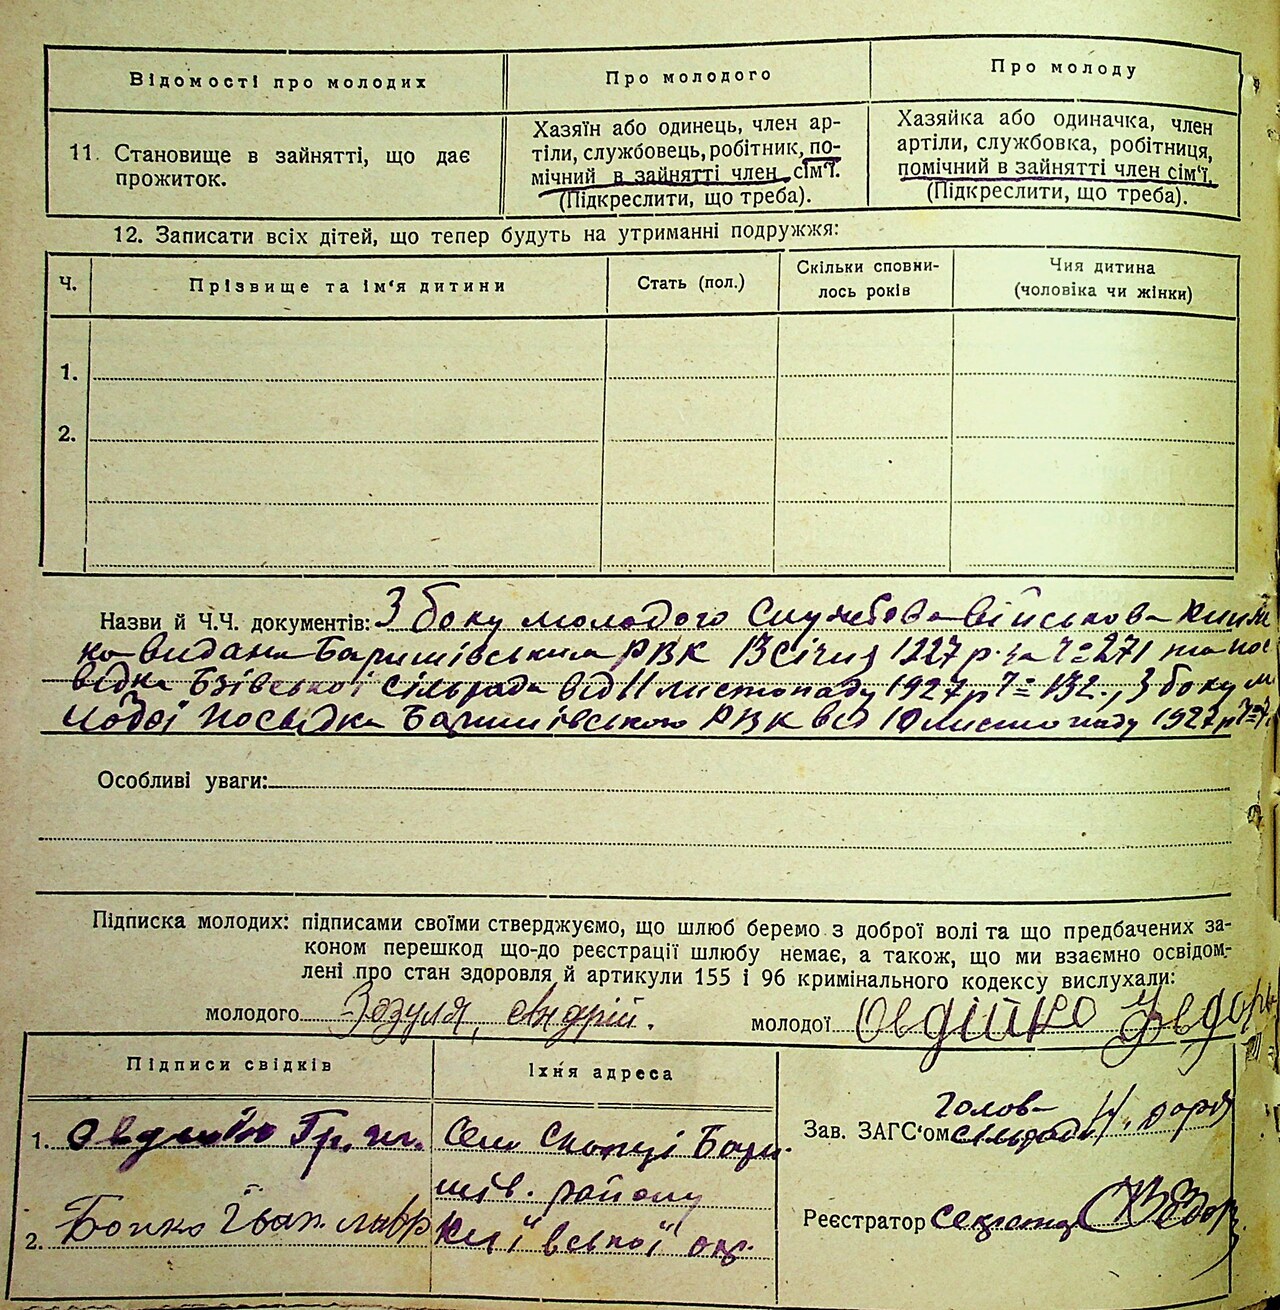 Відомості про молодих
Про молодого
Про молоду
11. Становище в зайнятті, що дає
прожиток.
Хазяїн або одинець, член ар-
тіли, службовець, робітник, по-
мічний в зайнятті член сім'ї.
(Підкреслити, що треба).
Хазяйка або одиначка, член
артіли, службовка, робітниця,
помічний в зайнятті член сім'ї.
(Підкреслити, що треба).
12. Записати всіх дітей, що тепер будуть на утриманні подружжя:
Ч.
Прізвище та ім'я дитини
Стать (пол.)
Скільки сповни-
лось років
Чия дитина
(чоловіка чи жінки)
1.
2.
Назви й Ч.Ч. документів: З боку молодого Службова військова книж
ка видана Баришівським РВК 13 січня 1927 р. за Ч= 271 та пос
відка Бзівської сільради від 11 листопаду 1927 р Ч= 132., З боку м
лодої посвідка Баришівського РВК від 10 листопаду 1927 р Ч=
Особливі уваги:
Підписка молодих: підписами своїми стверджуємо, що шлюб беремо з доброї волі та що предбачених за-
коном перешкод що-до реєстрації шлюбу немає, а також, що ми взаємно освідом-
лені про стан здоровля й артикули 155 і 96 кримінального кодексу вислухали:
молодого Зозуля, Андрій.
молодої Овдійко
Підписи свідків
Їхня адреса
1. Овдійко Гр.
Село Скопці Бари
шів. району
2. Бойко Іван Лавр
Київської окр.
Голова
Зав. ЗАГС'ом сільради
Реєстратор секретар